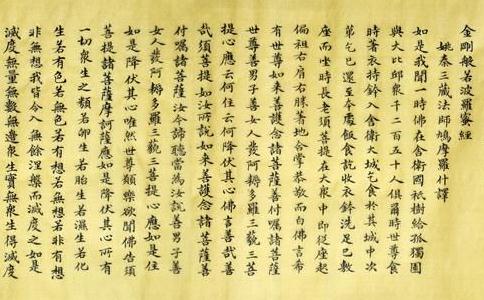 金剛般若波羅蜜經
姚秦三藏法師鳩摩羅什譯
如是我聞一時佛在舍衛國祇樹給孤獨園
與大比邱眾千二百五十人俱爾時世尊食
時著衣持鉢入舍衛大城乞食於其城中次
第乞已還至本處飯食訖收衣鉢洗足已敷
座而坐時長老須菩提在大眾中即從座起
偏袒右肩右膝著地合掌恭敬而白佛言希
有世尊如來善護念諸菩薩善付囑諸菩薩
世尊善男子善女人發阿耨多羅三藐三菩
提心應云何住云何降伏其心佛言善哉善
哉須菩提如汝所說如來善護念諸菩薩善
付囑諸菩薩汝今諦聽當為汝說善男子善
女人發阿耨多羅三藐三菩提心應如是住
如是降伏其心唯然世尊願樂欲聞佛告須
菩提諸菩薩摩訶薩應如是降伏其心所有
一切眾生之類若卵生若胎生若濕生若化
生若有色若無色若有想若無想若非有想
非無想我皆令入無餘涅槃而滅度之如是
滅度無量無數無邊眾生實無眾生得滅度